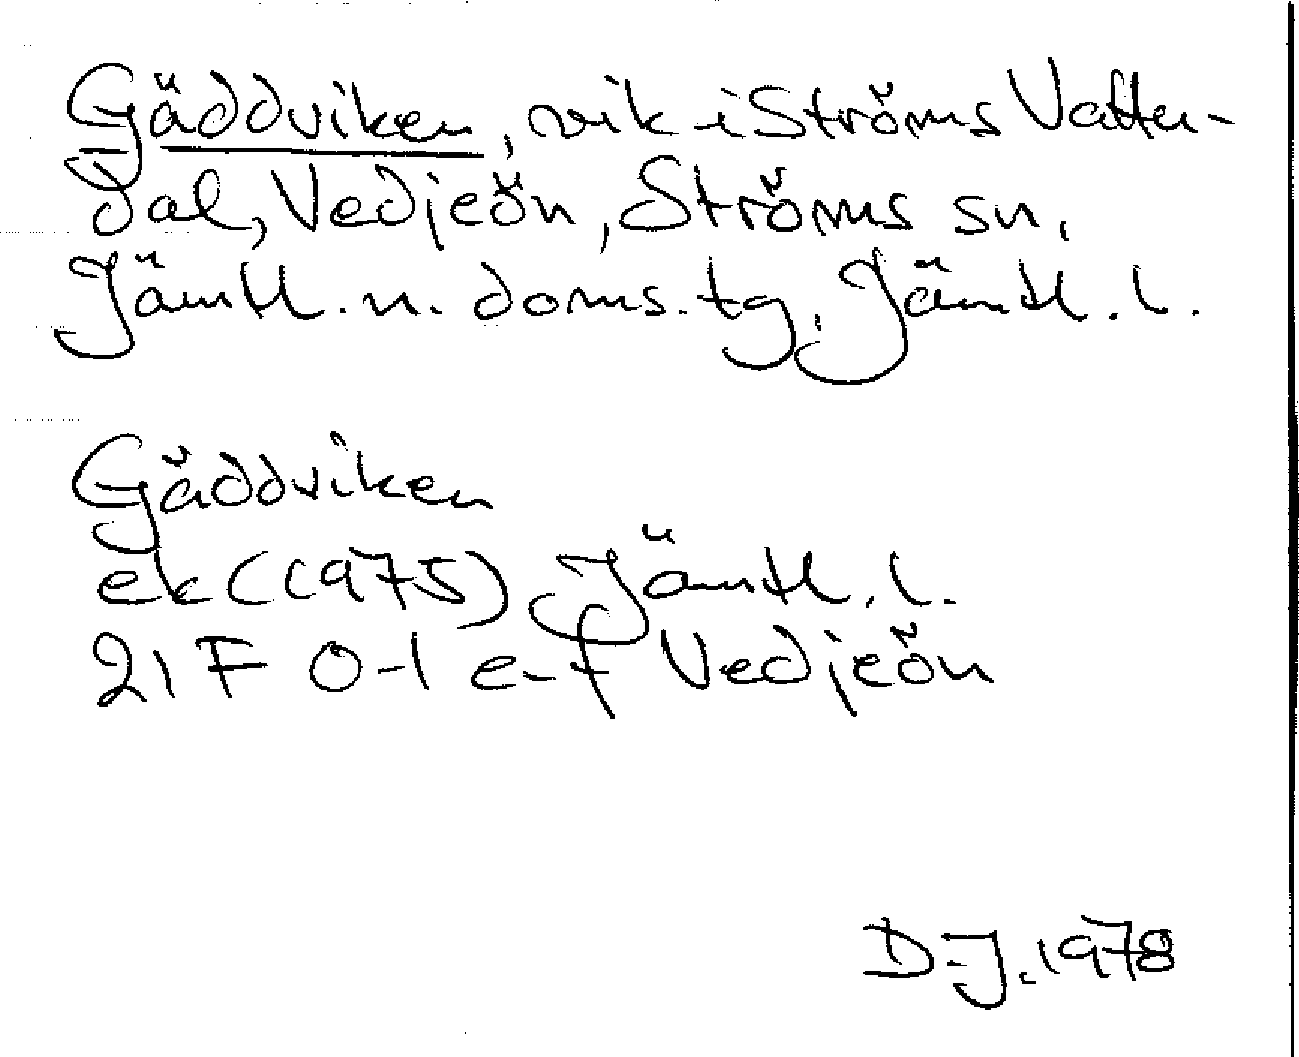 Gäddviken, vik i Ströms Vattu-
dal, Vedjeön, Ströms sn,
Jämtl. n. doms. tg, Jämtl. l.
Gäddviken
ek (1975) Jämtl. l.
21 F 0-1 e-f Vedjeön
D.J. 1978